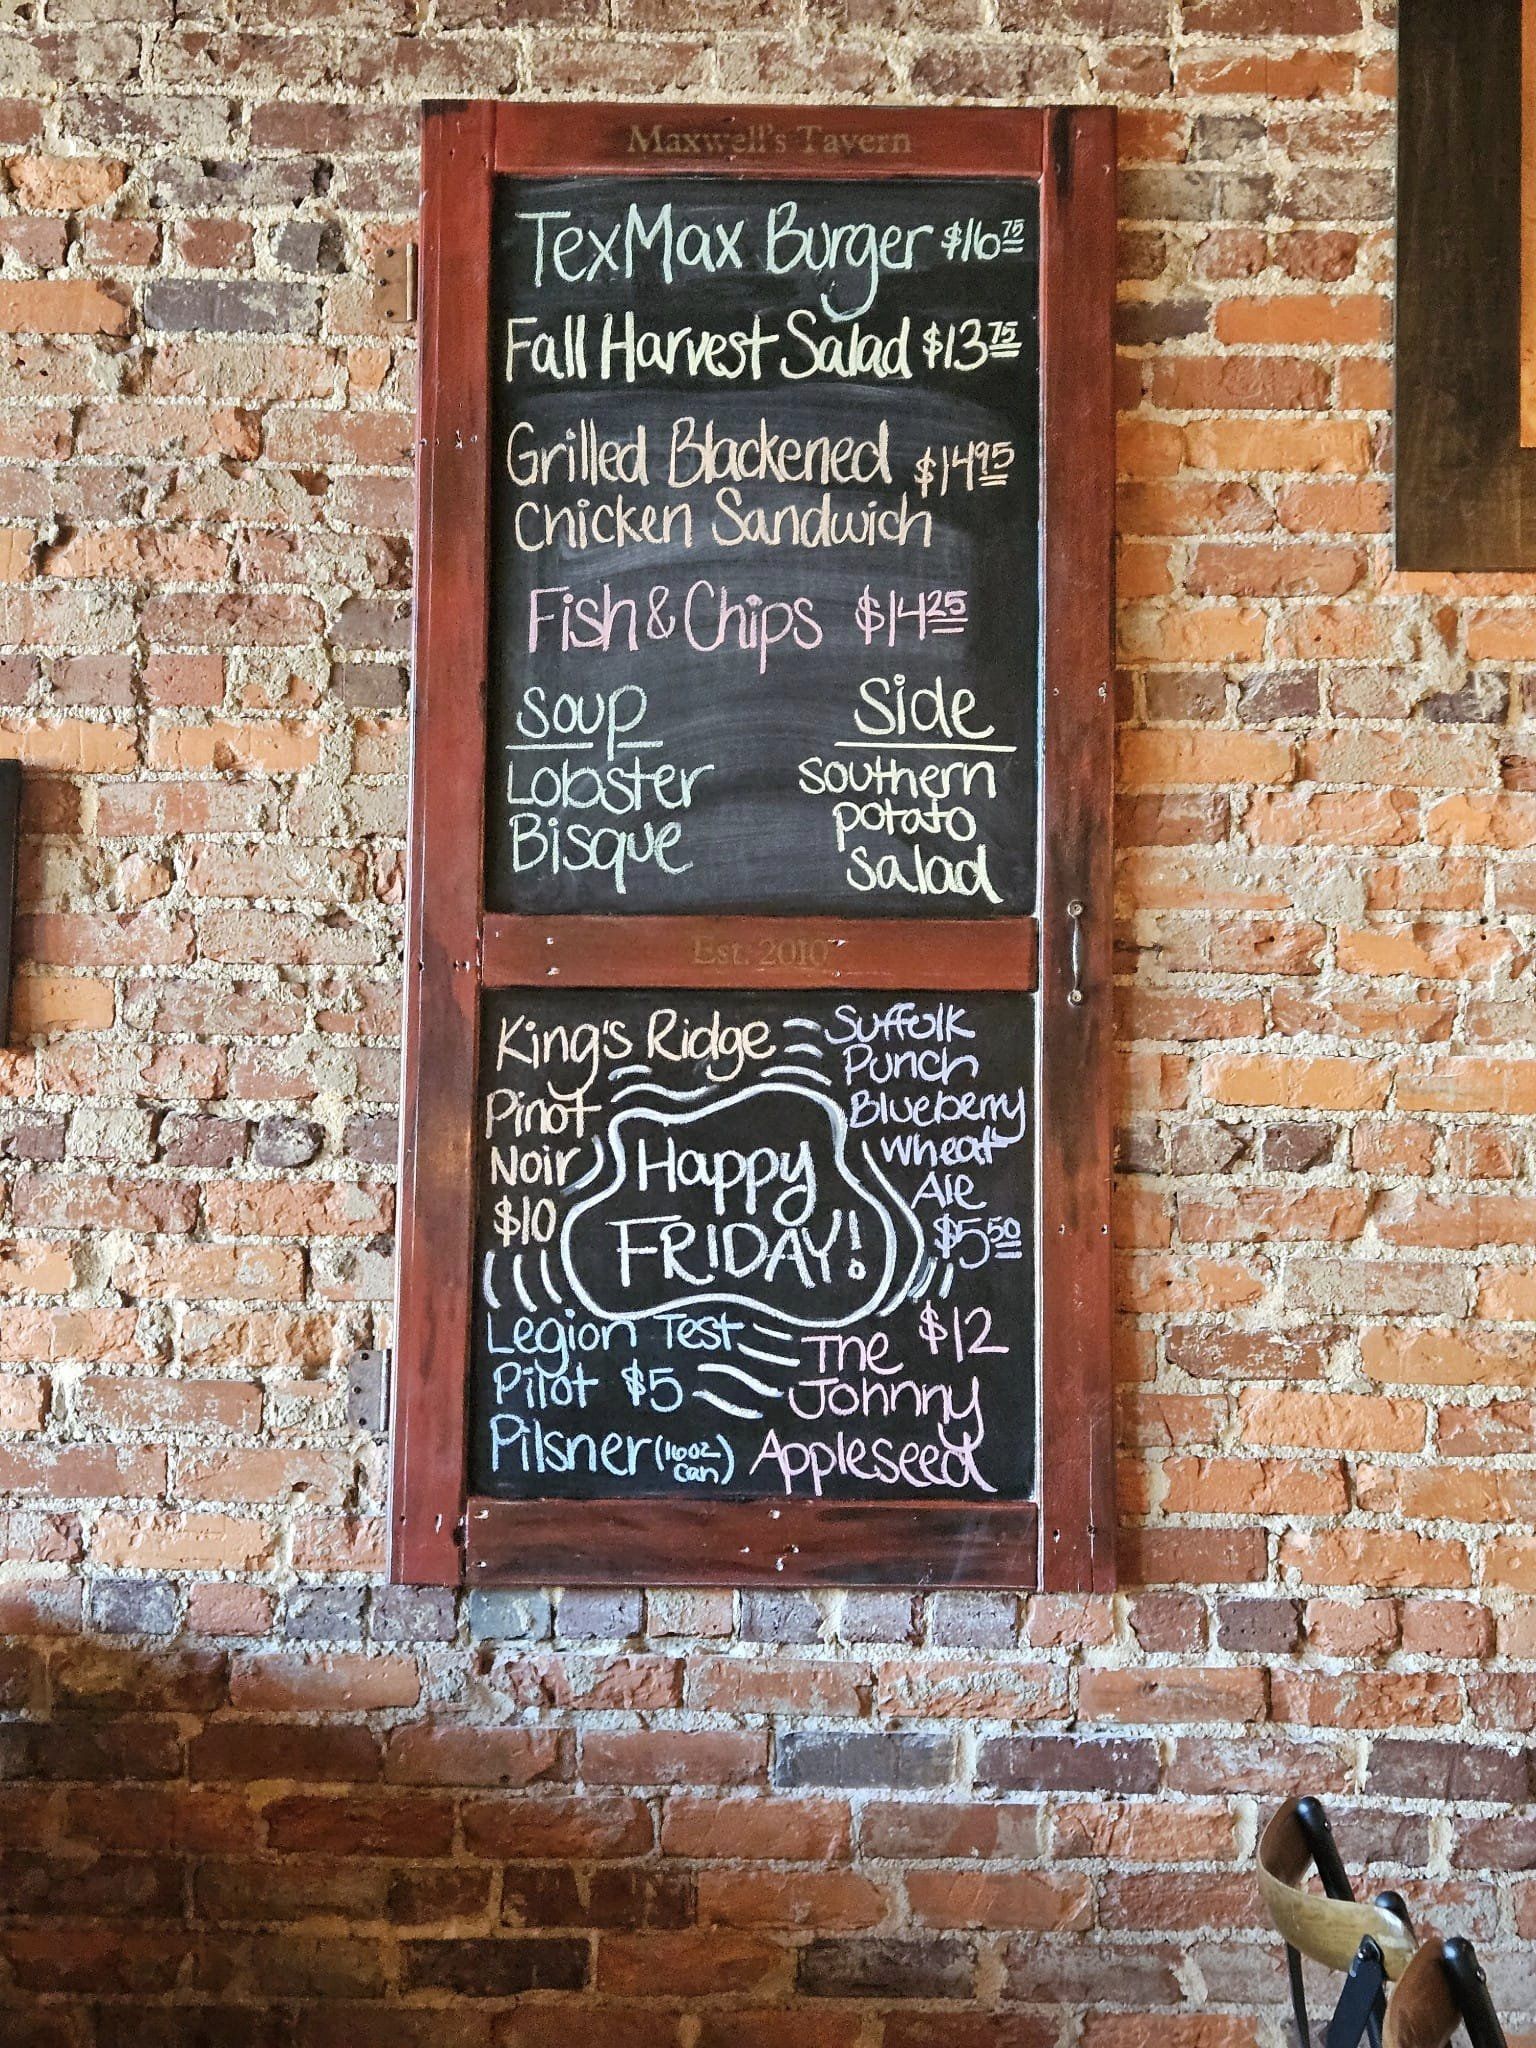 Maxwell's Tavern
TexMax Burger $16 75
Fall Harvest Salad $13 75
Grilled Blackened $14 95
Chicken Sandwich
Fish & Chips $14 25
Soup
Lobster
Bisque
Side
Southern
potato
salad
Est. 2010
King's Ridge
Pinot
Noir
$10
Suffolk
Punch
Blueberry
Wheat
Ale
$5 50
Happy
FRIDAY!
Legion Test
Pilot $5
Pilsner (16oz
can)
$12
The
Johnny
Appleseed